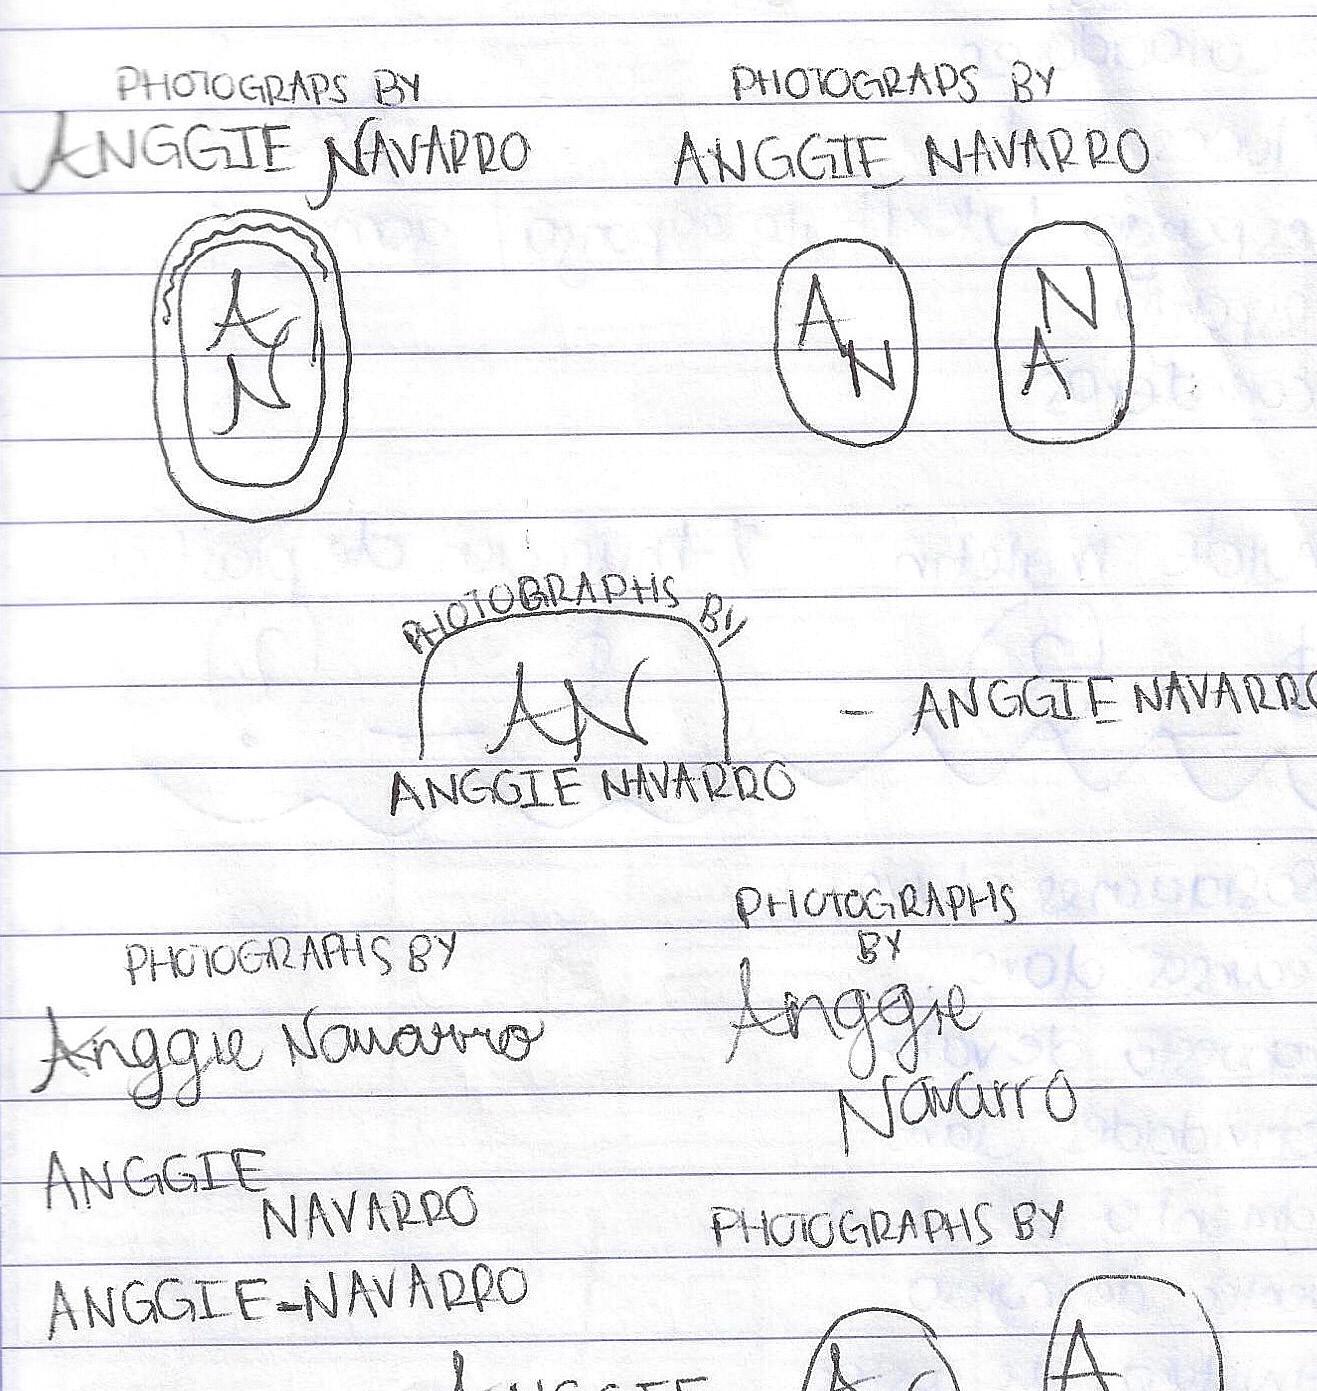 PHOTOGRAPS BY
ANGGIE NAVARRO
A
N
PHOTOGRAPS BY
ANGGIE NAVARRO
A
N
N
A
PHOTOGRAPHS BY
AN
ANGGIE NAVARRO
- ANGGIE NAVARRO
PHOTOGRAPHS BY
Anggie Navarro
PHOTOGRAPHS
BY
Anggie
Navarro
ANGGIE
NAVARRO
ANGGIE-NAVARRO
PHOTOGRAPHS BY
ANGGIE
A
A